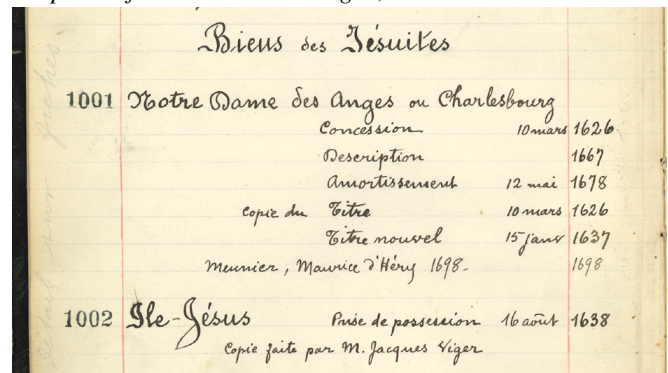 Biens des Jésuites
1001 Notre Dame des Anges ou Charlesbourg
Concession 10 mars 1626
Description 1667
Amortissement 12 mai 1678
Copie du Titre 10 mars 1626
Titre nouvel 15 janv 1637
Meunier, Maurice d'Héry 1698- 1698
1002 Ile-Jésus Prise de possession 16 août 1638
Copie faite par M. Jacques Viger